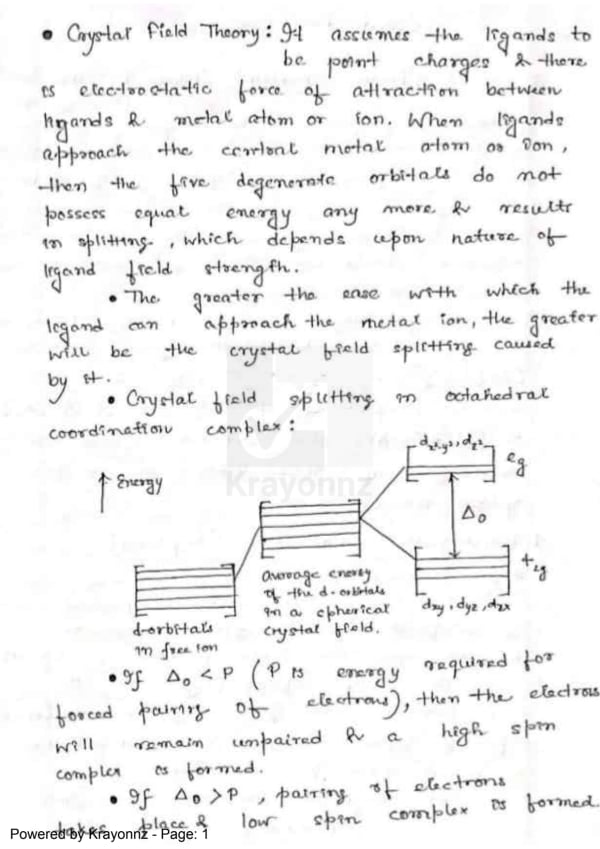 • Crystal Field Theory: It assumes the ligands to
be point charges & there
is electrostatic force of attraction between
ligands & metal atom or ion. When ligands
approach the central metal atom or ion,
then the five degenerate orbitals do not
possess equal energy any more & results
in splitting, which depends upon nature of
ligand field strength.
• The greater the ease with which the
legand can approach the metal ion, the greater
will be the crystal field splitting caused
by it.
• Crystal field splitting in octahedral
coordination complex:
↑ Energy
[d_x²-y², d_z²] eg
Krayonnz
Δ₀
average energy
of the d-orbitals
in a spherical
crystal field.
t_eg
d_xy, d_yz, d_zx
d-orbitals
in free ion
• If Δ₀ < P (P is energy required for
forced pairing of electrons), then the electrons
will remain unpaired & a high spin
complex is formed.
• If Δ₀ > P, pairing of electrons
takes place & low spin complex is formed.
Powered by Krayonnz - Page: 1